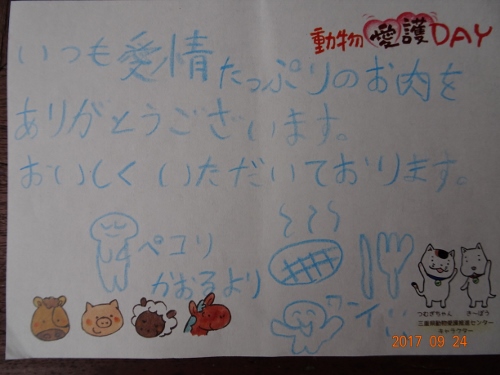 動物愛護DAY
いつも愛情たっぷりのお肉を
ありがとうございます。
おいしくいただいております。
ペコリ
かおるより
ワーイ
つむぎちゃん
きーぼう
三重県動物愛護推進センター
キャラクター
2017 09 24